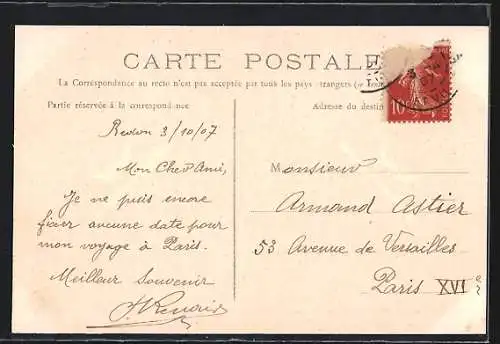 CARTE POSTALE
La Correspondance au recto n'est pas acceptée par tous les pays étrangers
Partie réservée à la correspondance
Adresse du destin
10
Redon 3/10/07
Mon Cher Ami,
Je ne puis encore
fixer aucune date pour
mon voyage à Paris.
Meilleur Souvenir
Monsieur
Armand Astier
53 Avenue de Versailles
Paris XVIe